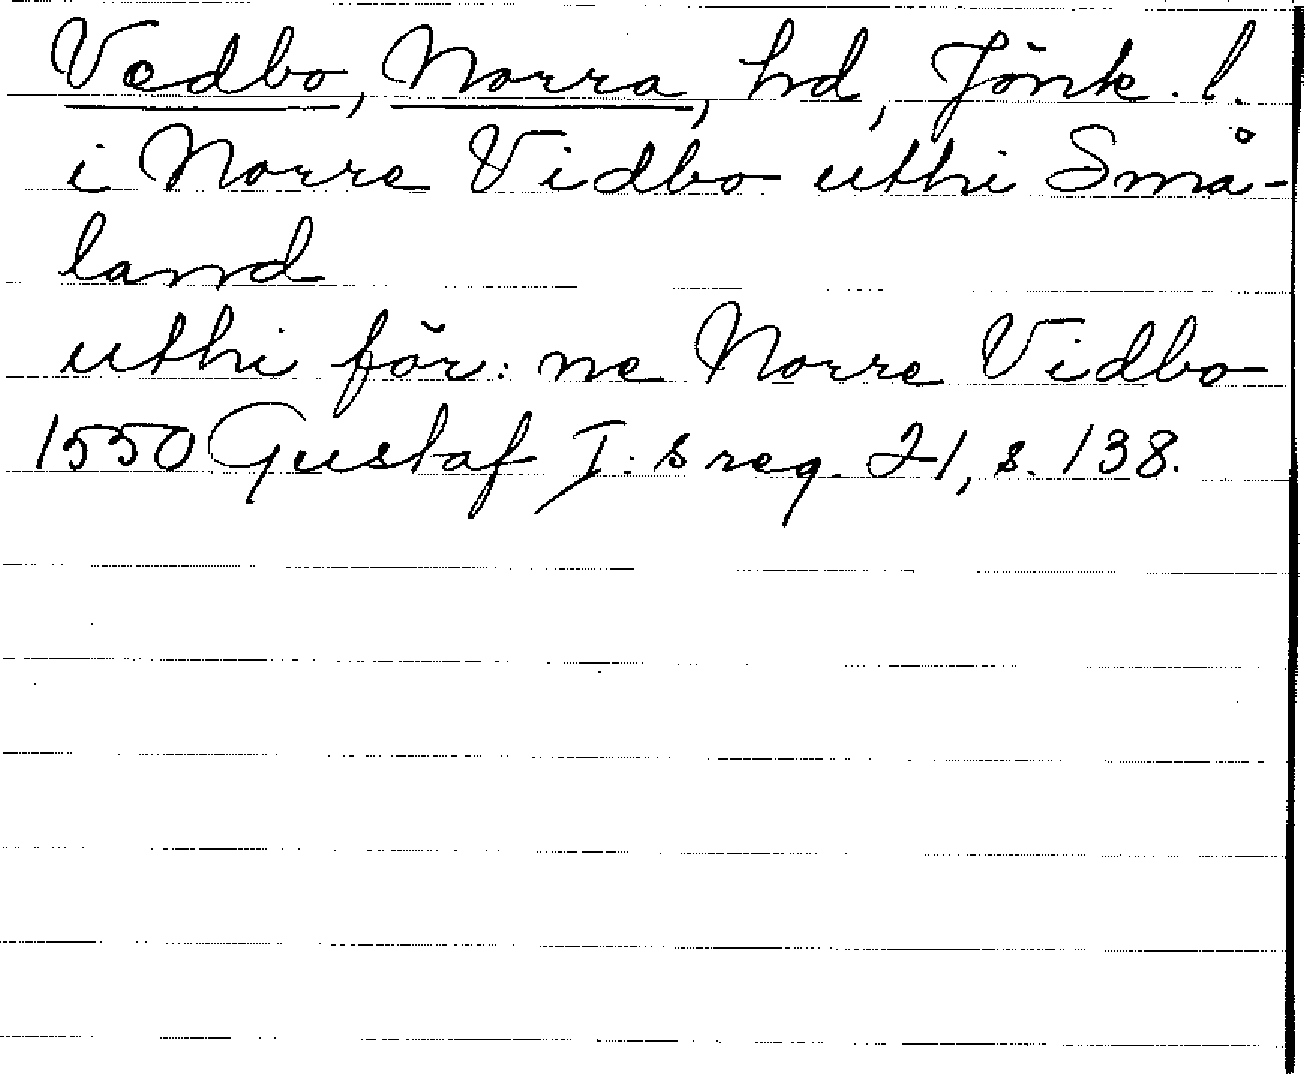 Vedbo, Norra, hd, Jönk. l.
i Norre Vidbo uthi Små-
land
uthi för: ne Norre Vidbo
1550 Gustaf I. s reg. 21, s. 138.